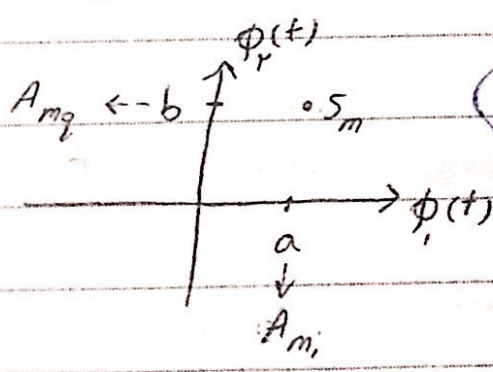 ϕ_r(t)
A_mq ← b
S_m
ϕ_1(t)
a
↓
A_mi